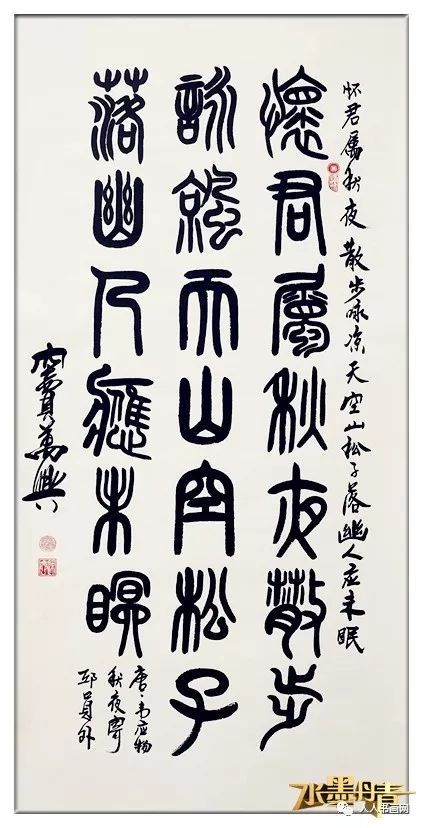 怀君属秋夜散步咏凉天空山松子落幽人应未眠
懷君屬秋夜散步
詠涼天山空松子
落幽人應未眠
唐·韦应物
秋夜寄
邱員外
竇萬興
水墨丹青
人人书画网